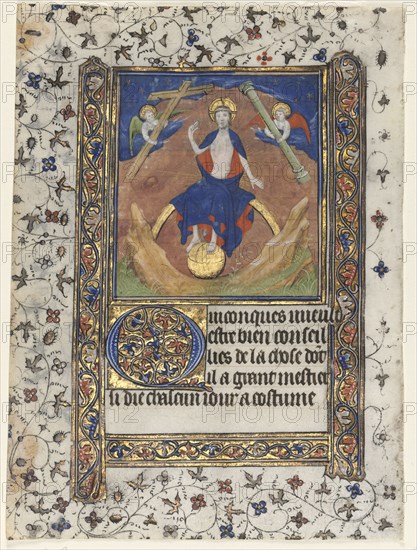 Quiconques uueult
estre bien conseil
lies de la chose dot
il a grant mestier
si die chascun iour a costume